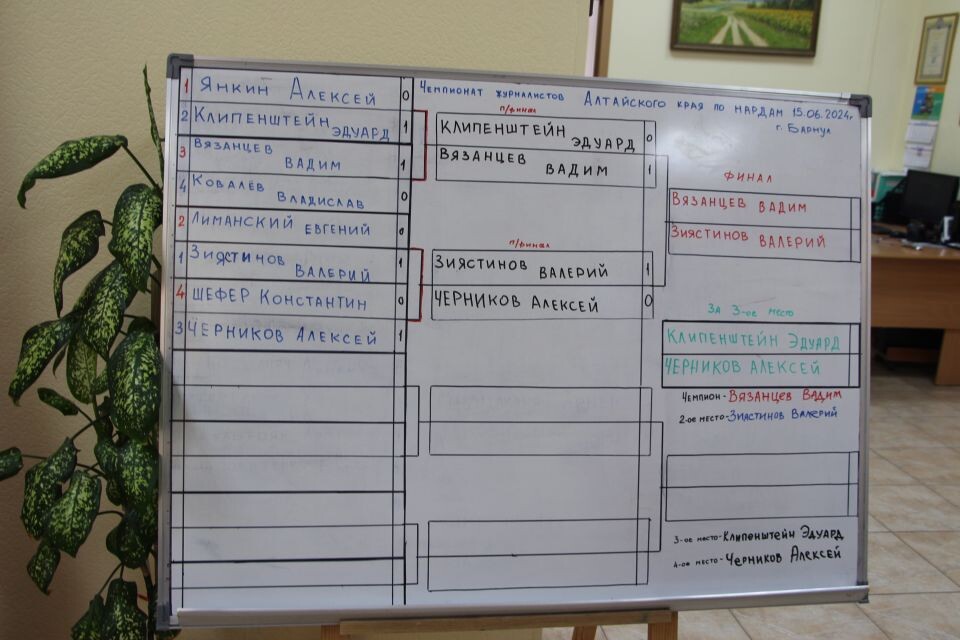 Чемпионат журналистов Алтайского края по нардам 15.06.2024г
г. Барнаул
1 Янкин Алексей 0
2 Клипенштейн Эдуард 1
3 Вязанцев Вадим 1
4 Ковалёв Владислав 0
2 Лиманский Евгений 0
1 Зиястинов Валерий 1
4 Шефер Константин 0
3 Черников Алексей 1
п/финал
Клипенштейн Эдуард 0
Вязанцев Вадим 1
п/финал
Зиястинов Валерий 1
Черников Алексей 0
Финал
Вязанцев Вадим
Зиястинов Валерий
За 3-ое место
Клипенштейн Эдуард
Черников Алексей
Чемпион - Вязанцев Вадим
2-ое место - Зиястинов Валерий
3-ое место - Клипенштейн Эдуард
4-ое место - Черников Алексей